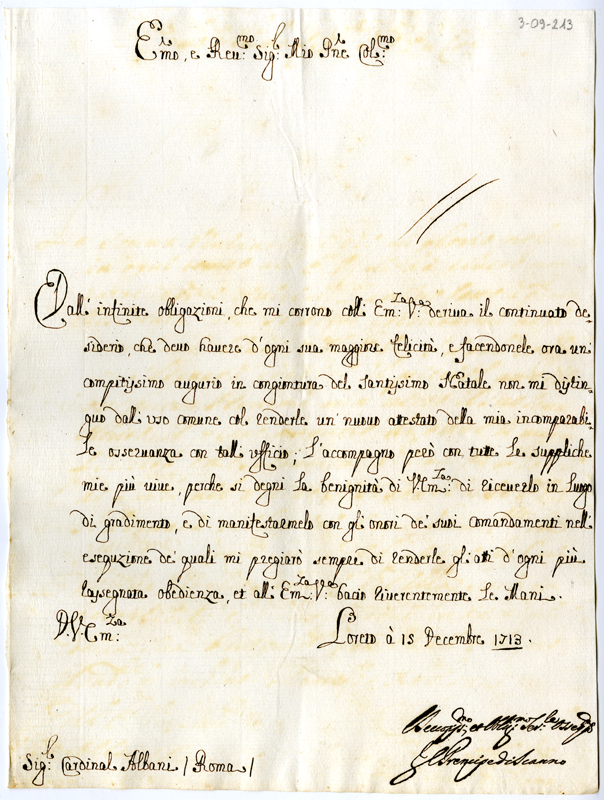 3-09-213
E.mo, e Reu.mo Sig.r Mio Pne Col.mo
Dall' infinite obligazioni, che mi corrono coll' Em.za V.a deriua il continuato de-
siderio, che deuo hauere d'ogni sua maggiore felicità, e facendonele ora un
compitissimo augurio in congiontura del Santissimo Natale non mi distin-
guo dall' uso comune col renderle un' nuouo attestato della mia incomparabi-
le osseruanza con tall' ufficio; L'accompagno però con tutte le suppliche
mie più uiue, perche si degni la benignità di V. Em.za di riceuerlo in luogo
di gradimento, e di manifestarmelo con gl' onori de' suoi comandamenti nell'
esequzione de' quali mi pregiarò sempre di renderle gl' atti d'ogni più
rassegnata obedienza, et all' Em.za V.a bacio riuerentemente le Mani.
D. V. Em.za Loreto à 15 Decembre 1713.
Deuotis.mo et Oblig.mo Ser.
Il Prencipe di Scanno
Sig.r Cardinal Albani / Roma /